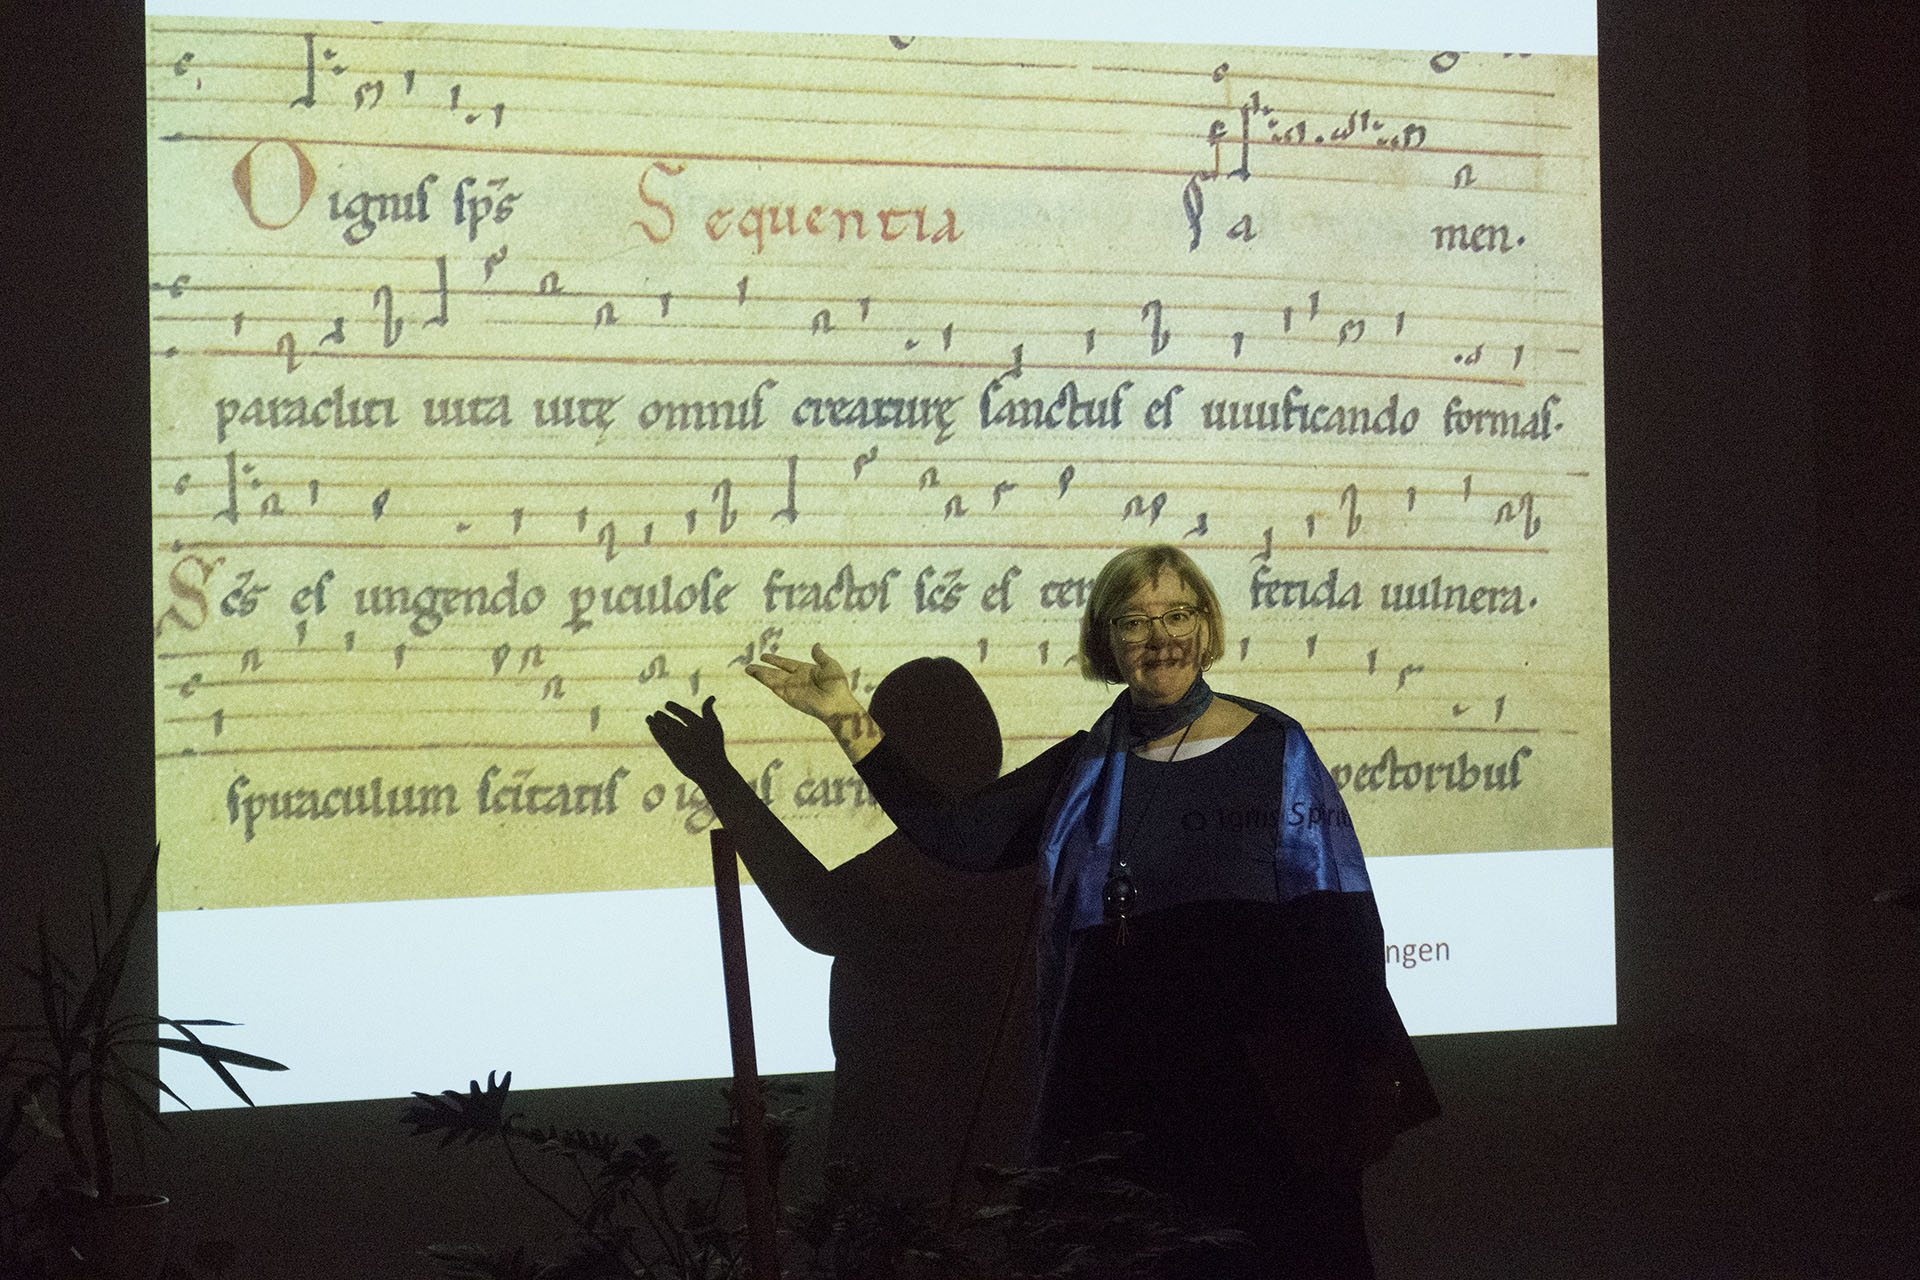 O ignis sp̄s Sequentia P a men.
paracliti uita uitę omnis creaturę sanctus es uiuificando formas.
Sc̄s es ungendo ꝑiculose fractos sc̄s es fetida uulnera.
spiraculum sc̄itatis o ignis pectoribus
O ignis Spirit
ngen